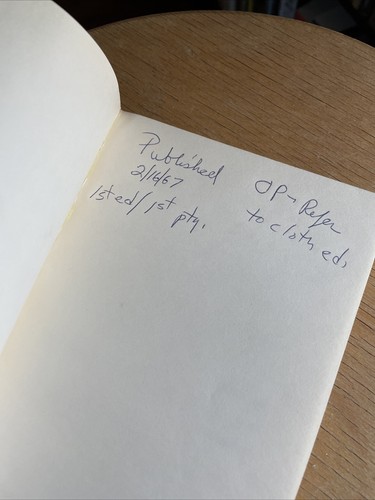 Published
2/16/67
1st ed/1st ptg.
OP - Refer
to cloth ed.